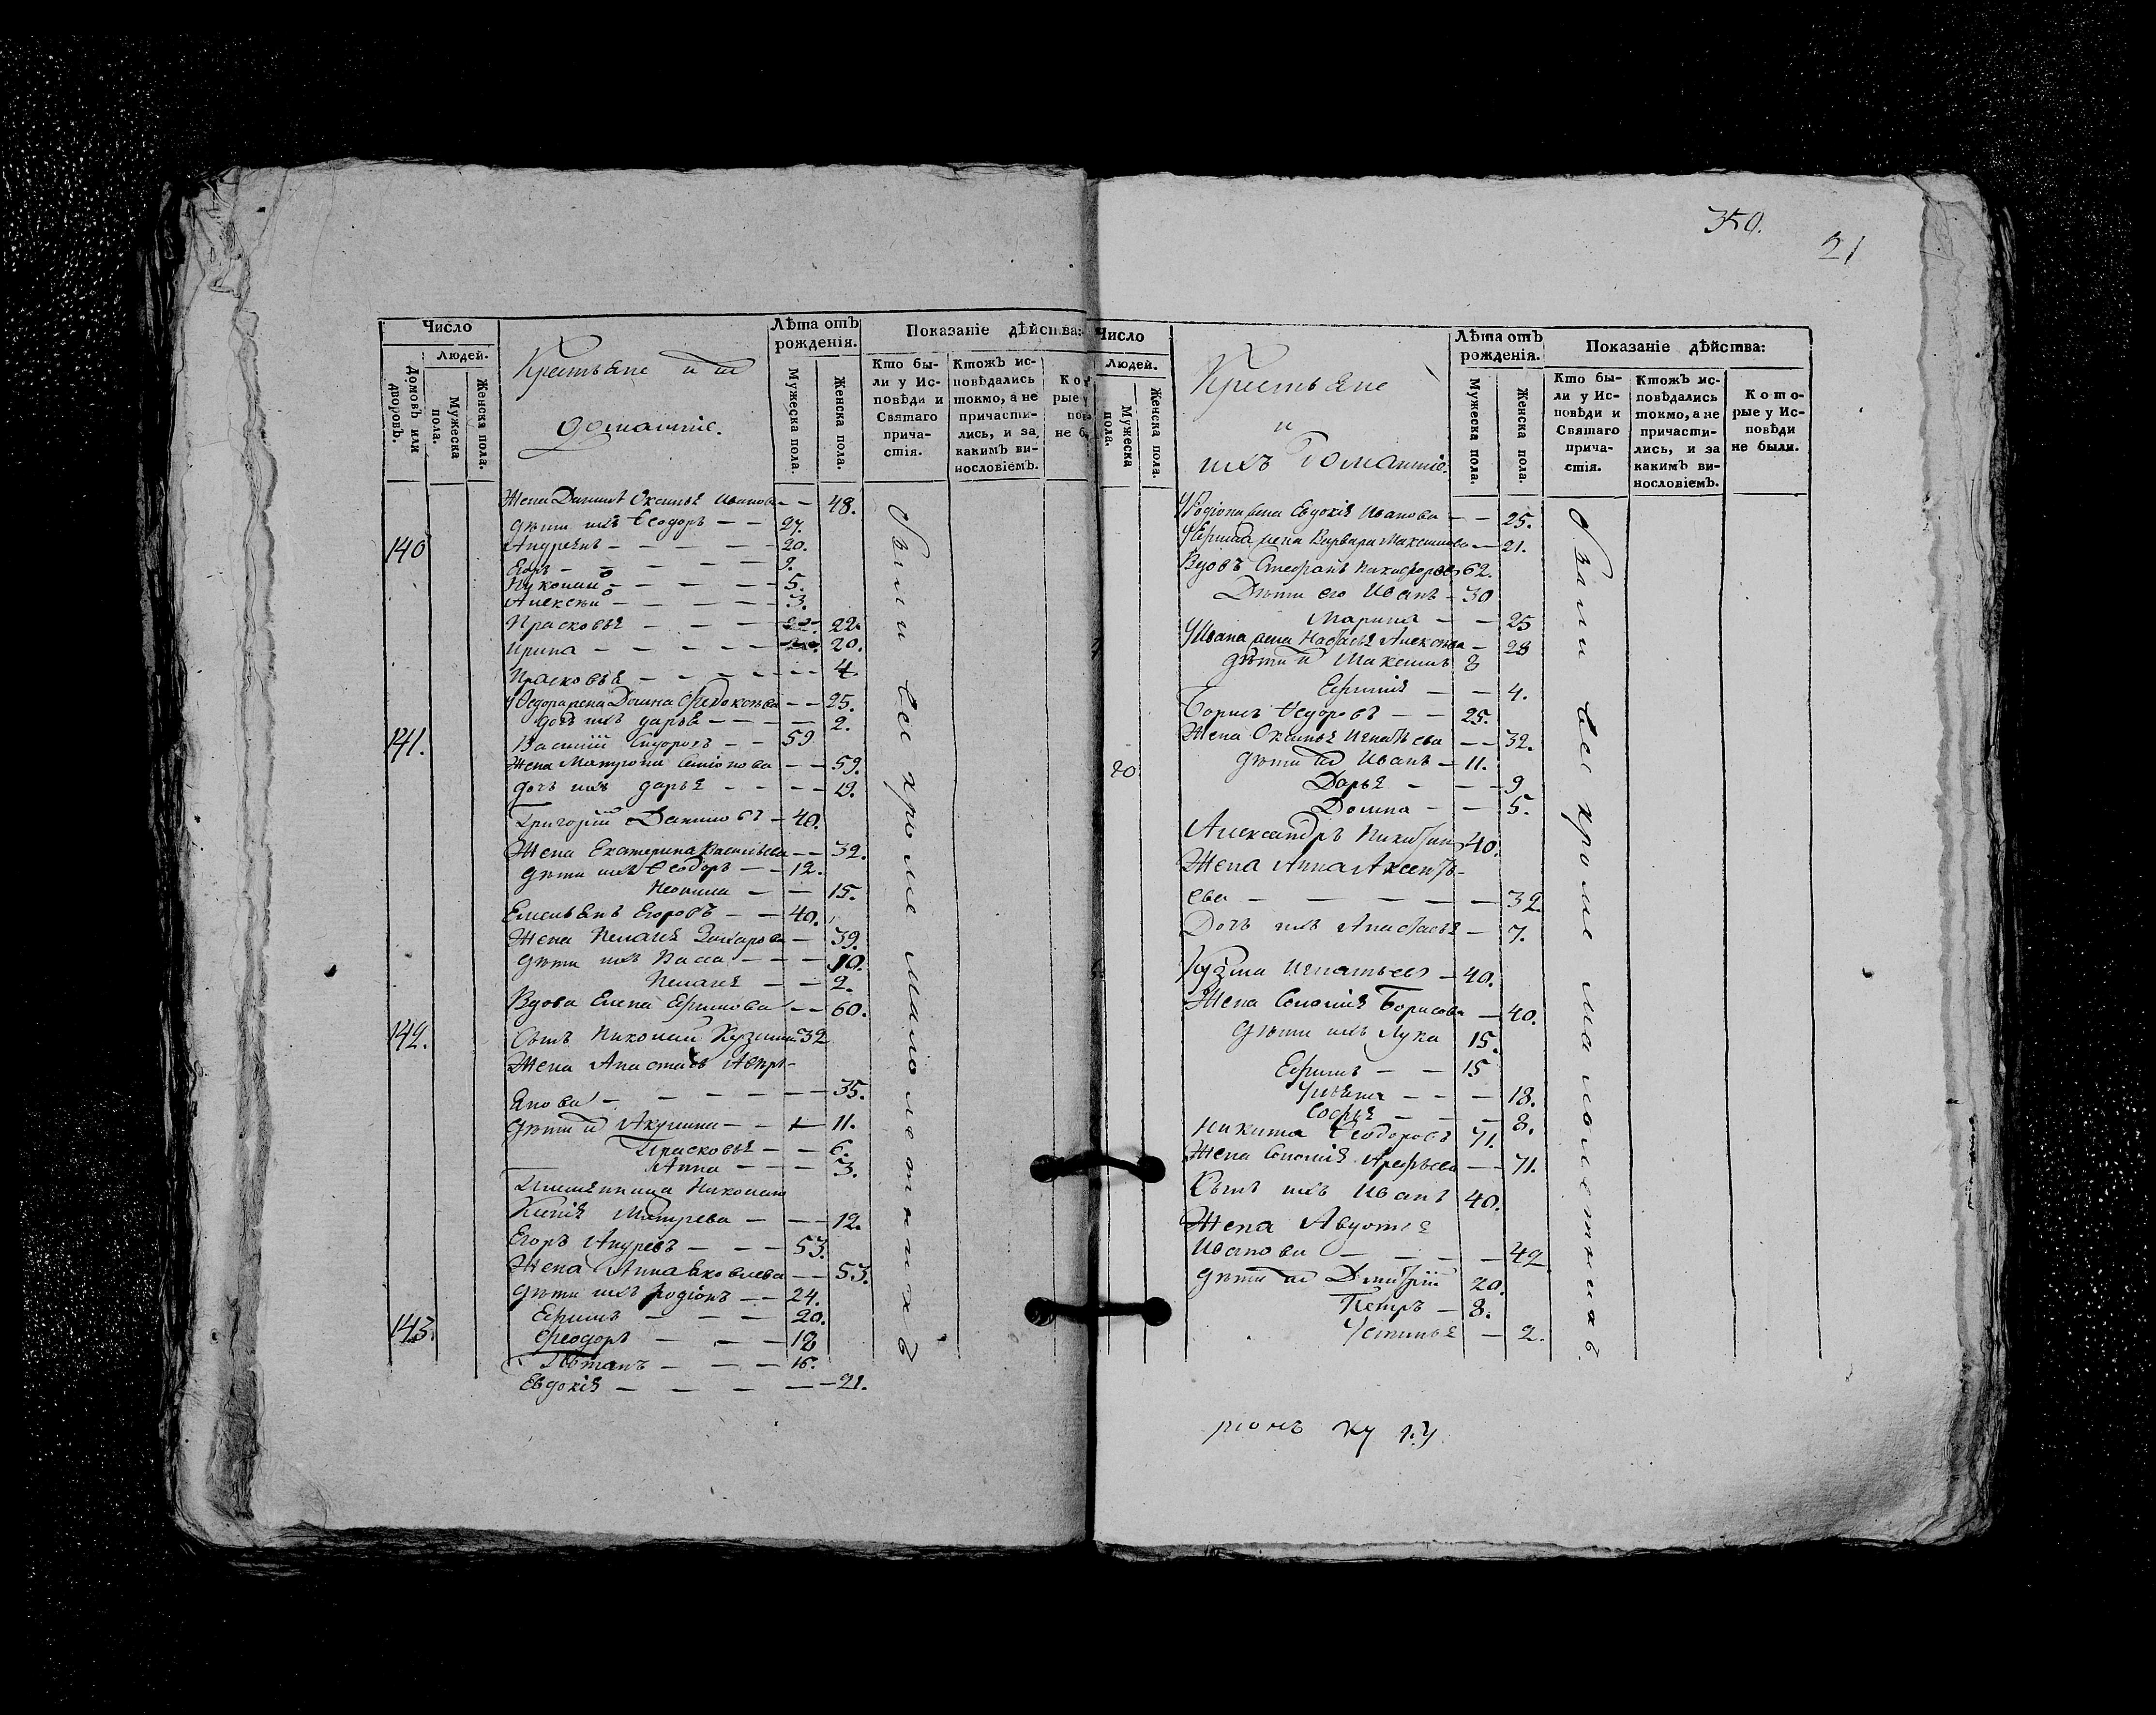 Число
Людей.
Домовъ или дворовъ.
Мужеска пола.
Женска пола.
Крестьяне и их
домашніе.
Лѣта отъ рожденія.
Мужеска пола.
Женска пола.
Показаніе дѣйства:
Кто бы-
ли у Ис-
повѣди и
Святаго
прича-
стія.
Ктожъ ис-
повѣдались
токмо, а не
причасти-
лись, и за
какимъ ви-
нословіемъ.
Жена Данилѣ Оксинья Иванова — — 48.
дѣти ихъ Ѳеодоръ — — 27.
140
Андреянъ — — — — 20.
Егоръ — — — — 9.
Николай — — — — 5.
Алексѣй — — — — 3.
Прасковья — — — 22.
Ирина — — — — 20.
Прасковья — — — — 4
Ѳедора жена Домна — — 25.
дочь ихъ дарья — — — 2.
141.
Василій Сидоровъ — — 59
Жена Матрона Семіонова — — 59.
дочь ихъ дарья — — — 19.
Григорій Даниловъ — 40.
Жена Екатерина Васильева — — 32.
дѣти ихъ Ѳеодоръ — — 12.
— — 15.
Емельянъ Егоровъ — — 40.
Жена Пелагея Захарова — 39.
дѣти ихъ Васса — — — 10.
Пелагея — — 2.
Вдова Елена Ефимова — — 60.
142.
Сынъ Николай Кузминъ 32
Жена Анастасья Авкр-
янова — — — — — 35.
дѣти их Акулина — — — 11.
Прасковья — — 6.
Анна — — — 3.
Племянница Николая
Ксенія — — 12.
Егоръ Андреевъ — — — 53.
Жена Анна Яковлева — — 53.
дѣти ихъ Родіонъ — — 24.
Ефимъ — — — 20.
143.
Феодоръ — — — 19
— — — 16.
Евдокія — — — — — 21.
Были всѣ кромѣ малолетнихъ
350.
21
Число
Людей.
Мужеска пола.
Женска пола.
Крестьяне
и
ихъ домашніе.
Лѣта отъ рожденія.
Мужеска пола.
Женска пола.
Показаніе дѣйства:
Кто бы-
ли у Ис-
повѣди и
Святаго
прича-
стія.
Ктожъ ис-
повѣдались
токмо, а не
причасти-
лись, и за
какимъ ви-
нословіемъ.
Кото-
рые у Ис-
повѣди
не были.
У Родіона жена Евдокія Иванова — — 25.
У Ефима жена Варвара Максимова — 21.
Вдовъ Стефанъ Никифоровъ 62.
Дѣти его Иванъ — 30
Марина — — 25
У Ивана жена Настасья Алексѣева — 28
дѣти их Максимъ 8
Ефимія — — 4.
Борисъ Ѳедоровъ — — 25.
Жена Оксинья Игнатьева — — 32.
дѣти их Иванъ — 11.
Дарья — — — 9
Домна — — 5.
Александръ Никитинъ 40.
Жена Анна Аксенть-
ева — — — — — — 32
Дочь ихъ Анастасья — 7.
Кузма Игнатьевъ — 40.
Жена Соломія Борисова — 40.
дѣти ихъ Лука 15.
Ефимъ — — 15
Ульяна — — — 18.
Софья — — — 8.
Никита Ѳеодоровъ 71.
Жена Соломія Арефьева — — 71.
Сынъ ихъ Иванъ 40.
Жена Авдотья
Иванова — — — — 42
дѣти их Дмитрій 20.
Петръ — 8.
Устинья — 2.
Были всѣ кроме малолетнихъ